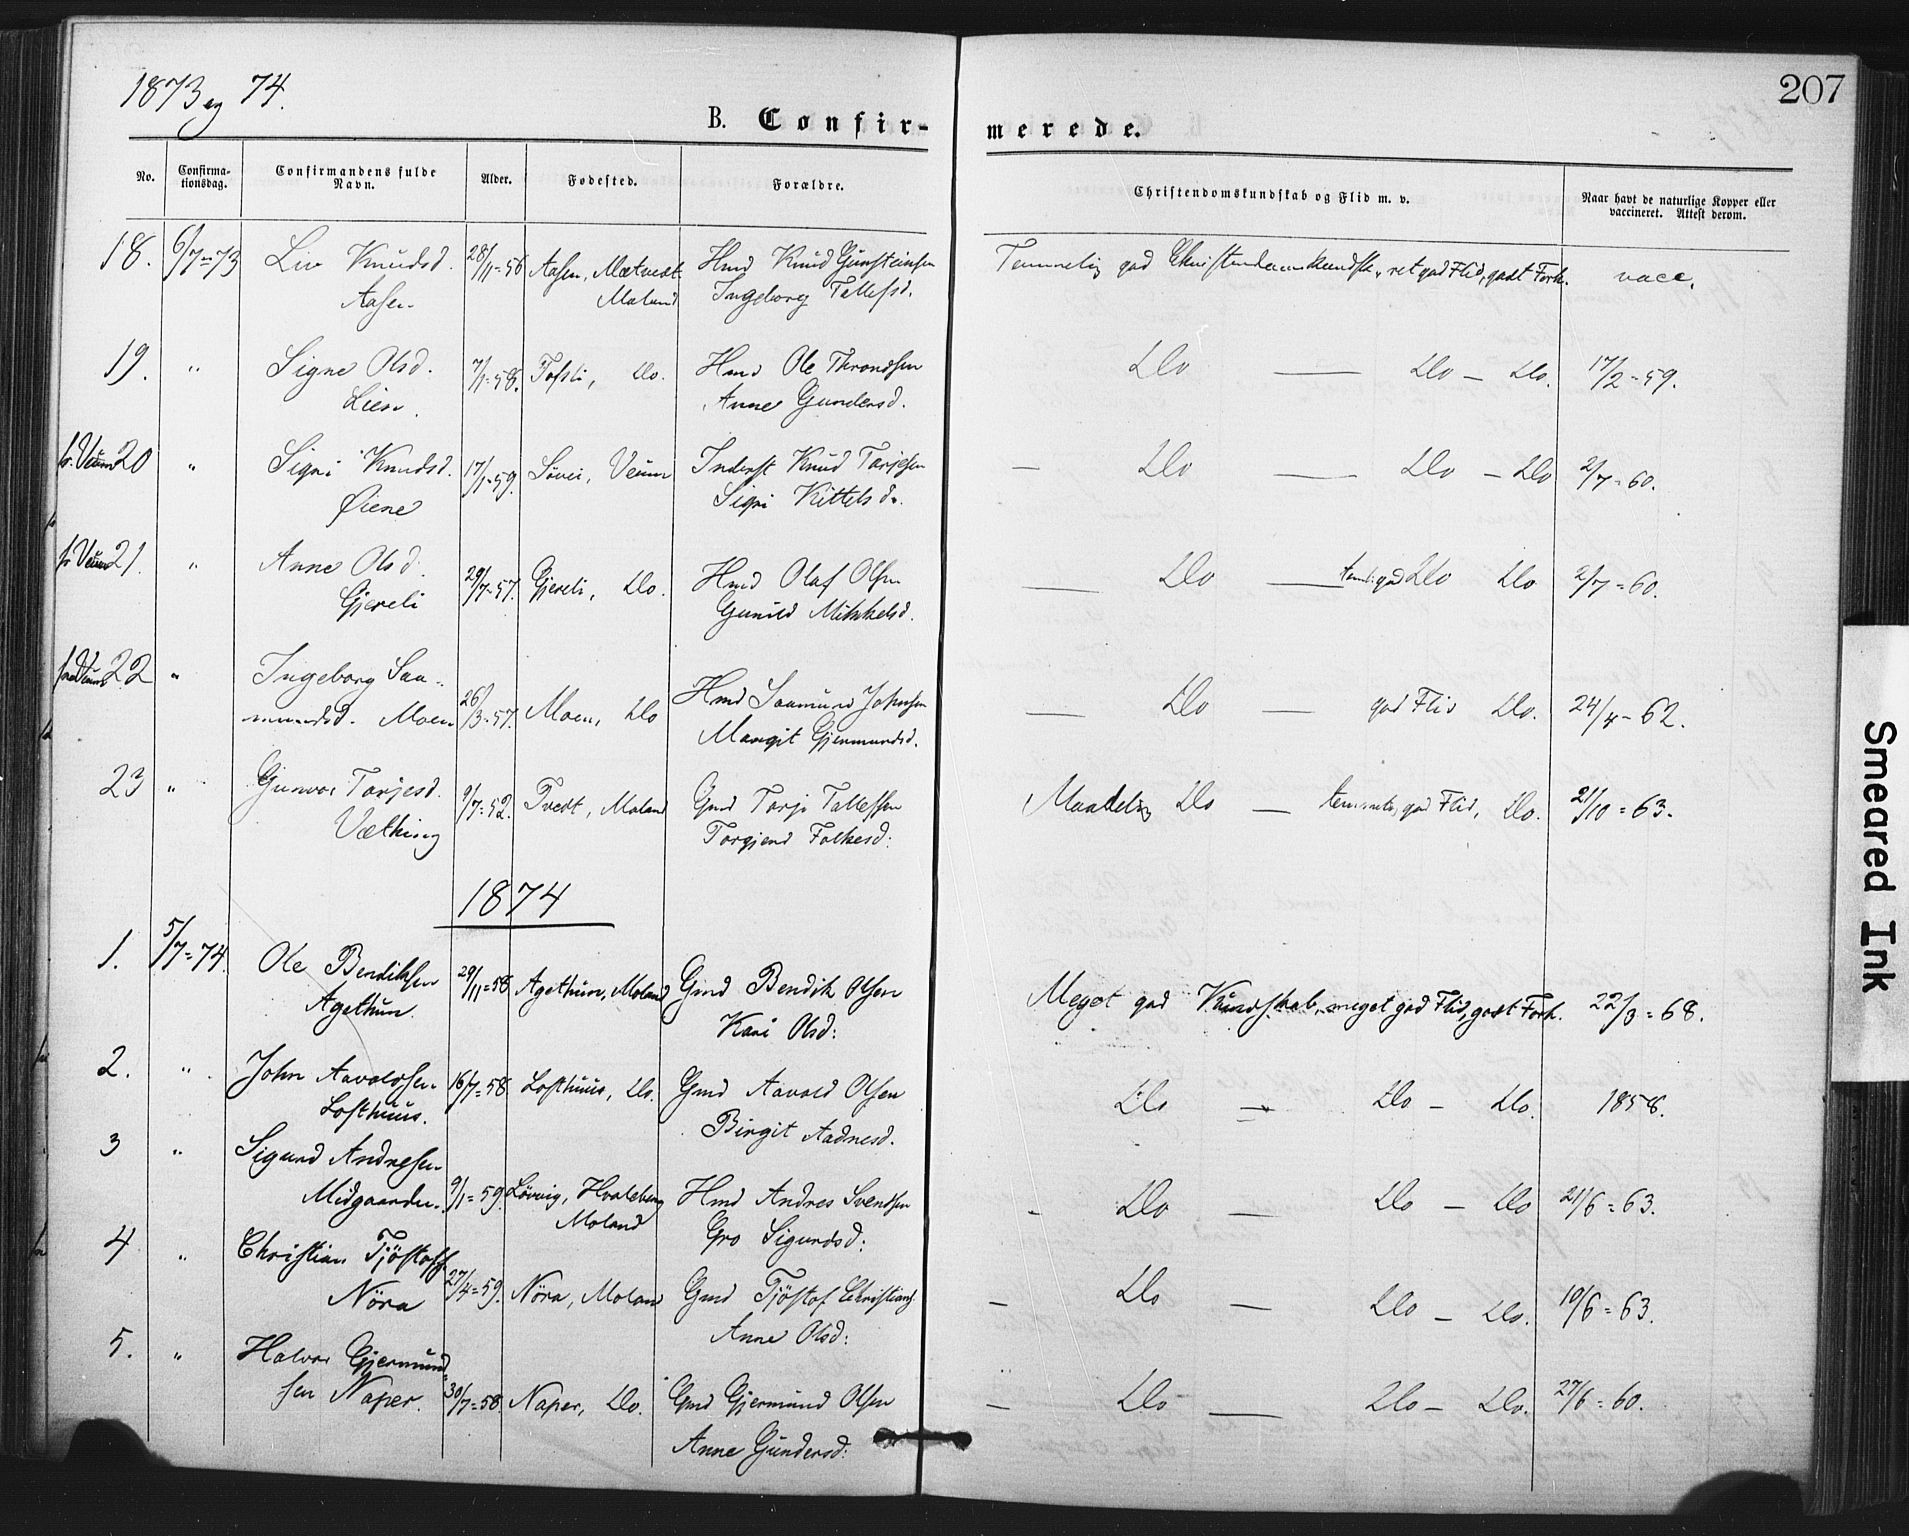 1873 og 74.
207
B. Confir-
merede.
No.
Confirma-
tionsdag.
Confirmandens fulde
Navn.
Alder.
Fødested.
Forældre.
Christendomskundskab og Flid m. v.
Naar havt de naturlige Kopper eller
vaccineret. Attest derom.
18. 6/7=73 Liv Knudsd. 28/11=56 Aasen, Hmd Knud Gunsteinsen Temmelig god Christendomskundsk., ret god Flid, godt Forh. vacc.
Aasen Moland Ingeborg Tallefsd.
19. " Signe Olsd. 7/1=58. Tofsli, Do. Hmd Ole Throndsen Do — Do — Do. 17/2=59.
Lien. Anne Gundersd.
fr. Veum 20 " Signi Knudsd. 17/1=59. Veum Inderst Knud Tarjesen — Do — Do — Do 2/7=60.
Øiene Signi Kittelsd.
fr Veum 21. " Anne Olsd. 29/7=57. Gjereli, Do. Hmd Olaf Olsen — Do — teml. god Do Do 2/7=60.
Gjereli Gunild Mikkelsd.
fra Veum 22 " Ingeborg Saa-
mundsd. Moen 26/3=57. Moen, Do Hmd Saamund Johnsen — Do — god Flid Do. 24/4=62.
Margit Gjermundsd.
23 " Gunvor Tarjesd. 9/7=52. Tveit, Moland Gmd Tarje Tallefsen Maadelig Do — temmelig god Flid, Do. 21/10=63.
Væthing Torgjerd Folkesd.
1874
1. 5/7=74. Ole Bendiksen 29/11=58 Agethun, Moland Gmd Bendik Olsen Meget god Kundskab, meget god Flid, godt Forh. 22/3=68.
Agethun. Kari Olsd:
2. " John Aavoldsen 16/7=58 Lofthuus, Do. Gmd Aavold Olsen Do — Do — Do. 1858.
Lofthuus. Birgit Aadnesd.
3 " Sigurd Andresen
Midgaarden. 9/1=59. Løvvig, Hvaleberg Hmd Andres Svendsen Do — Do — Do 21/6=63.
Moland Gro Sigurdsd:
4 " Christian Tjøstofs.
Nöra 27/4=59. Nöra, Moland Gmd Tjöstof Christians. — Do — Do — Do. 10/6=63.
Anne Olsd:
5. " Halvor Gjermund-
sen Naper. 30/7=58. Naper, Do. Gmd Gjermund Olsen — Do — Do — Do. 27/6=60.
Anne Gundersd:
Smeared Ink